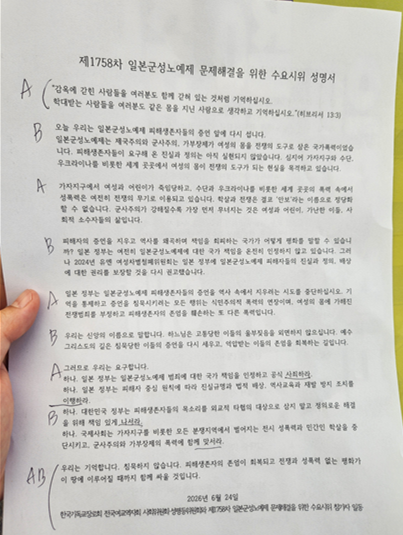 제1758차 일본군성노예제 문제해결을 위한 수요시위 성명서
A "감옥에 갇힌 사람들을 여러분도 함께 갇혀 있는 것처럼 기억하십시오.
학대받는 사람들을 여러분도 같은 몸을 지닌 사람으로 생각하고 기억하십시오."(히브리서 13:3)
B 오늘 우리는 일본군성노예제 피해생존자들의 증언 앞에 다시 섭니다.
일본군성노예제는 제국주의와 군사주의, 가부장제가 여성의 몸을 전쟁의 도구로 삼은 국가폭력이었습
니다. 피해생존자들이 요구해 온 진실과 정의는 아직 실현되지 않았습니다. 심지어 가자지구와 수단,
우크라이나를 비롯한 세계 곳곳에서 여성의 몸이 전쟁의 도구가 되는 현실을 목격하고 있습니다.
A 가자지구에서 여성과 어린이가 죽임당하고, 수단과 우크라이나를 비롯한 세계 곳곳의 폭력 속에서
성폭력은 여전히 전쟁의 무기로 이용되고 있습니다. 학살과 전쟁은 결코 '안보'라는 이름으로 정당화
할 수 없습니다. 군사주의가 강해질수록 가장 먼저 무너지는 것은 여성과 어린이, 가난한 이들, 사회
적 소수자들의 삶입니다.
B 피해자의 증언을 지우고 역사를 왜곡하며 책임을 회피하는 국가가 어떻게 평화를 말할 수 있습니
까? 일본 정부는 여전히 일본군성노예제에 대한 국가 책임을 온전히 인정하지 않고 있습니다. 그러
나 2024년 유엔 여성차별철폐위원회는 일본 정부에 일본군성노예제 피해자들의 진실과 정의, 배상
에 대한 권리를 보장할 것을 다시 권고했습니다.
A 일본 정부는 일본군성노예제 피해생존자들의 증언을 역사 속에서 지우려는 시도를 중단하십시오. 기
억을 통제하고 증언을 침묵시키려는 모든 행위는 식민주의적 폭력의 연장이며, 여성의 몸에 가해진
전쟁범죄를 부정하고 피해생존자의 존엄을 훼손하는 또 다른 폭력입니다.
B 우리는 신앙의 이름으로 말합니다. 하느님은 고통당한 이들의 울부짖음을 외면하지 않으십니다. 예수
그리스도의 길은 침묵당한 이들의 증언을 다시 세우고, 억압받는 이들의 존엄을 회복하는 길입니다.
A 그러므로 우리는 요구합니다.
하나. 일본 정부는 일본군성노예제 범죄에 대한 국가 책임을 인정하고 공식 사죄하라.
하나. 일본 정부는 피해자 중심 원칙에 따라 진실규명과 법적 배상, 역사교육과 재발 방지 조치를
이행하라.
B 하나. 대한민국 정부는 피해생존자들의 목소리를 외교적 타협의 대상으로 삼지 말고 정의로운 해결
을 위해 책임 있게 나서라.
하나. 국제사회는 가자지구를 비롯한 모든 분쟁지역에서 벌어지는 전시 성폭력과 민간인 학살을 중
단시키고, 군사주의와 가부장제의 폭력에 함께 맞서라.
AB 우리는 기억합니다. 침묵하지 않습니다. 피해생존자의 존엄이 회복되고 전쟁과 성폭력 없는 평화가
이 땅에 이루어질 때까지 함께 싸울 것입니다.
2026년 6월 24일
한국기독교장로회 전국여교역자회 사회위원회·성평등위원회와 제1758차 일본군성노예제 문제해결을 위한 수요시위 참가자 일동